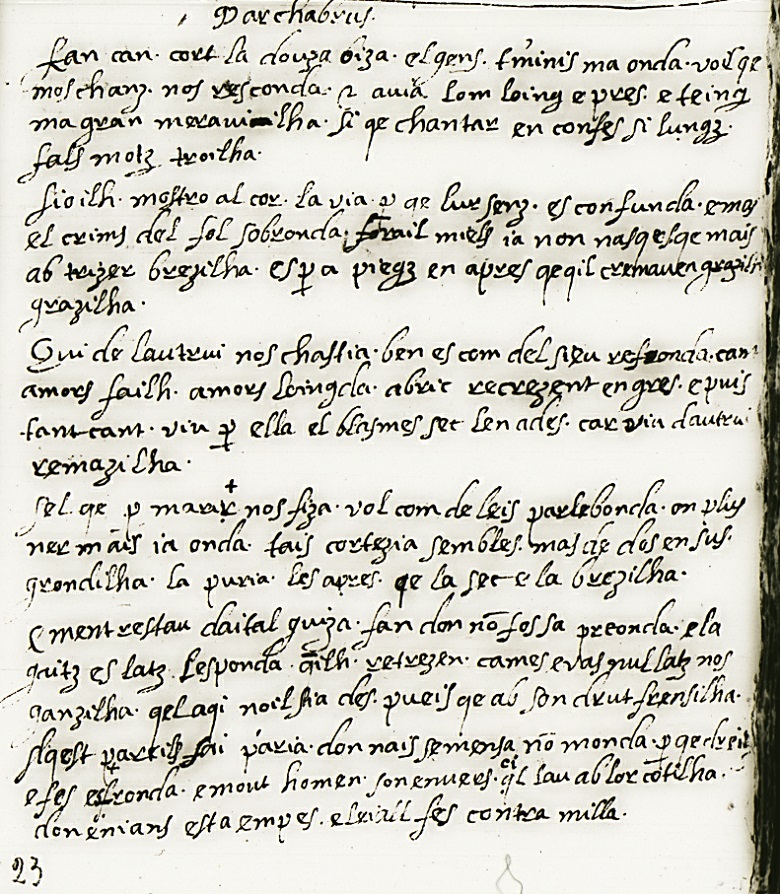 Darchabrus.
Kan can. cort la douza biza. elgens. tminis ma onda. voil qe
mos chanz. nos resconda. & auia lom loing e pres. e teing
ma gran meravilha. si qe chantar en confes si lungz.
fals motz troilha.
sioilh. mostro al cor. la via. p qe lur senz. es confunda. e mos
el crims del fol sobronda. forail mielz ia non nasqes qe mais
ab trizer brezilha. es p a piegz en apres qe qil cremauen grazilh
grazilha.
Qui de lautrui nos chastia. ben es com del sieu resconda. can
amors failh. amors loingda. abric recrezent en gres. e puis
tant cant. viu p ella el blasmes sec len ades. car via dautrui
remazilha.
Sel. qe p marir nos fiza. vol com de leis parlebonda. on plus
ner mais ia onda. tais cortezia sembles. mas de dos en sus.
grondilha. la puria. les apres. qe la sec e la brezilha.
Q ment restau daital guiza. fan don no fos sa preonda. e la
guitz es latz. lesponda. qilh. retrezen. cames e vas nul latz nos
ganzilha. qel aqi noil stia des. pueis qe ab son drut frensilha.
dqest pareilz fai paria. don nais semensa no monda. p qe dreit
e fes esfronda. e mout homen. son enuers. qil lau ab lor cotilha.
don enians esta em pes. e leiall fes contra milla.
23